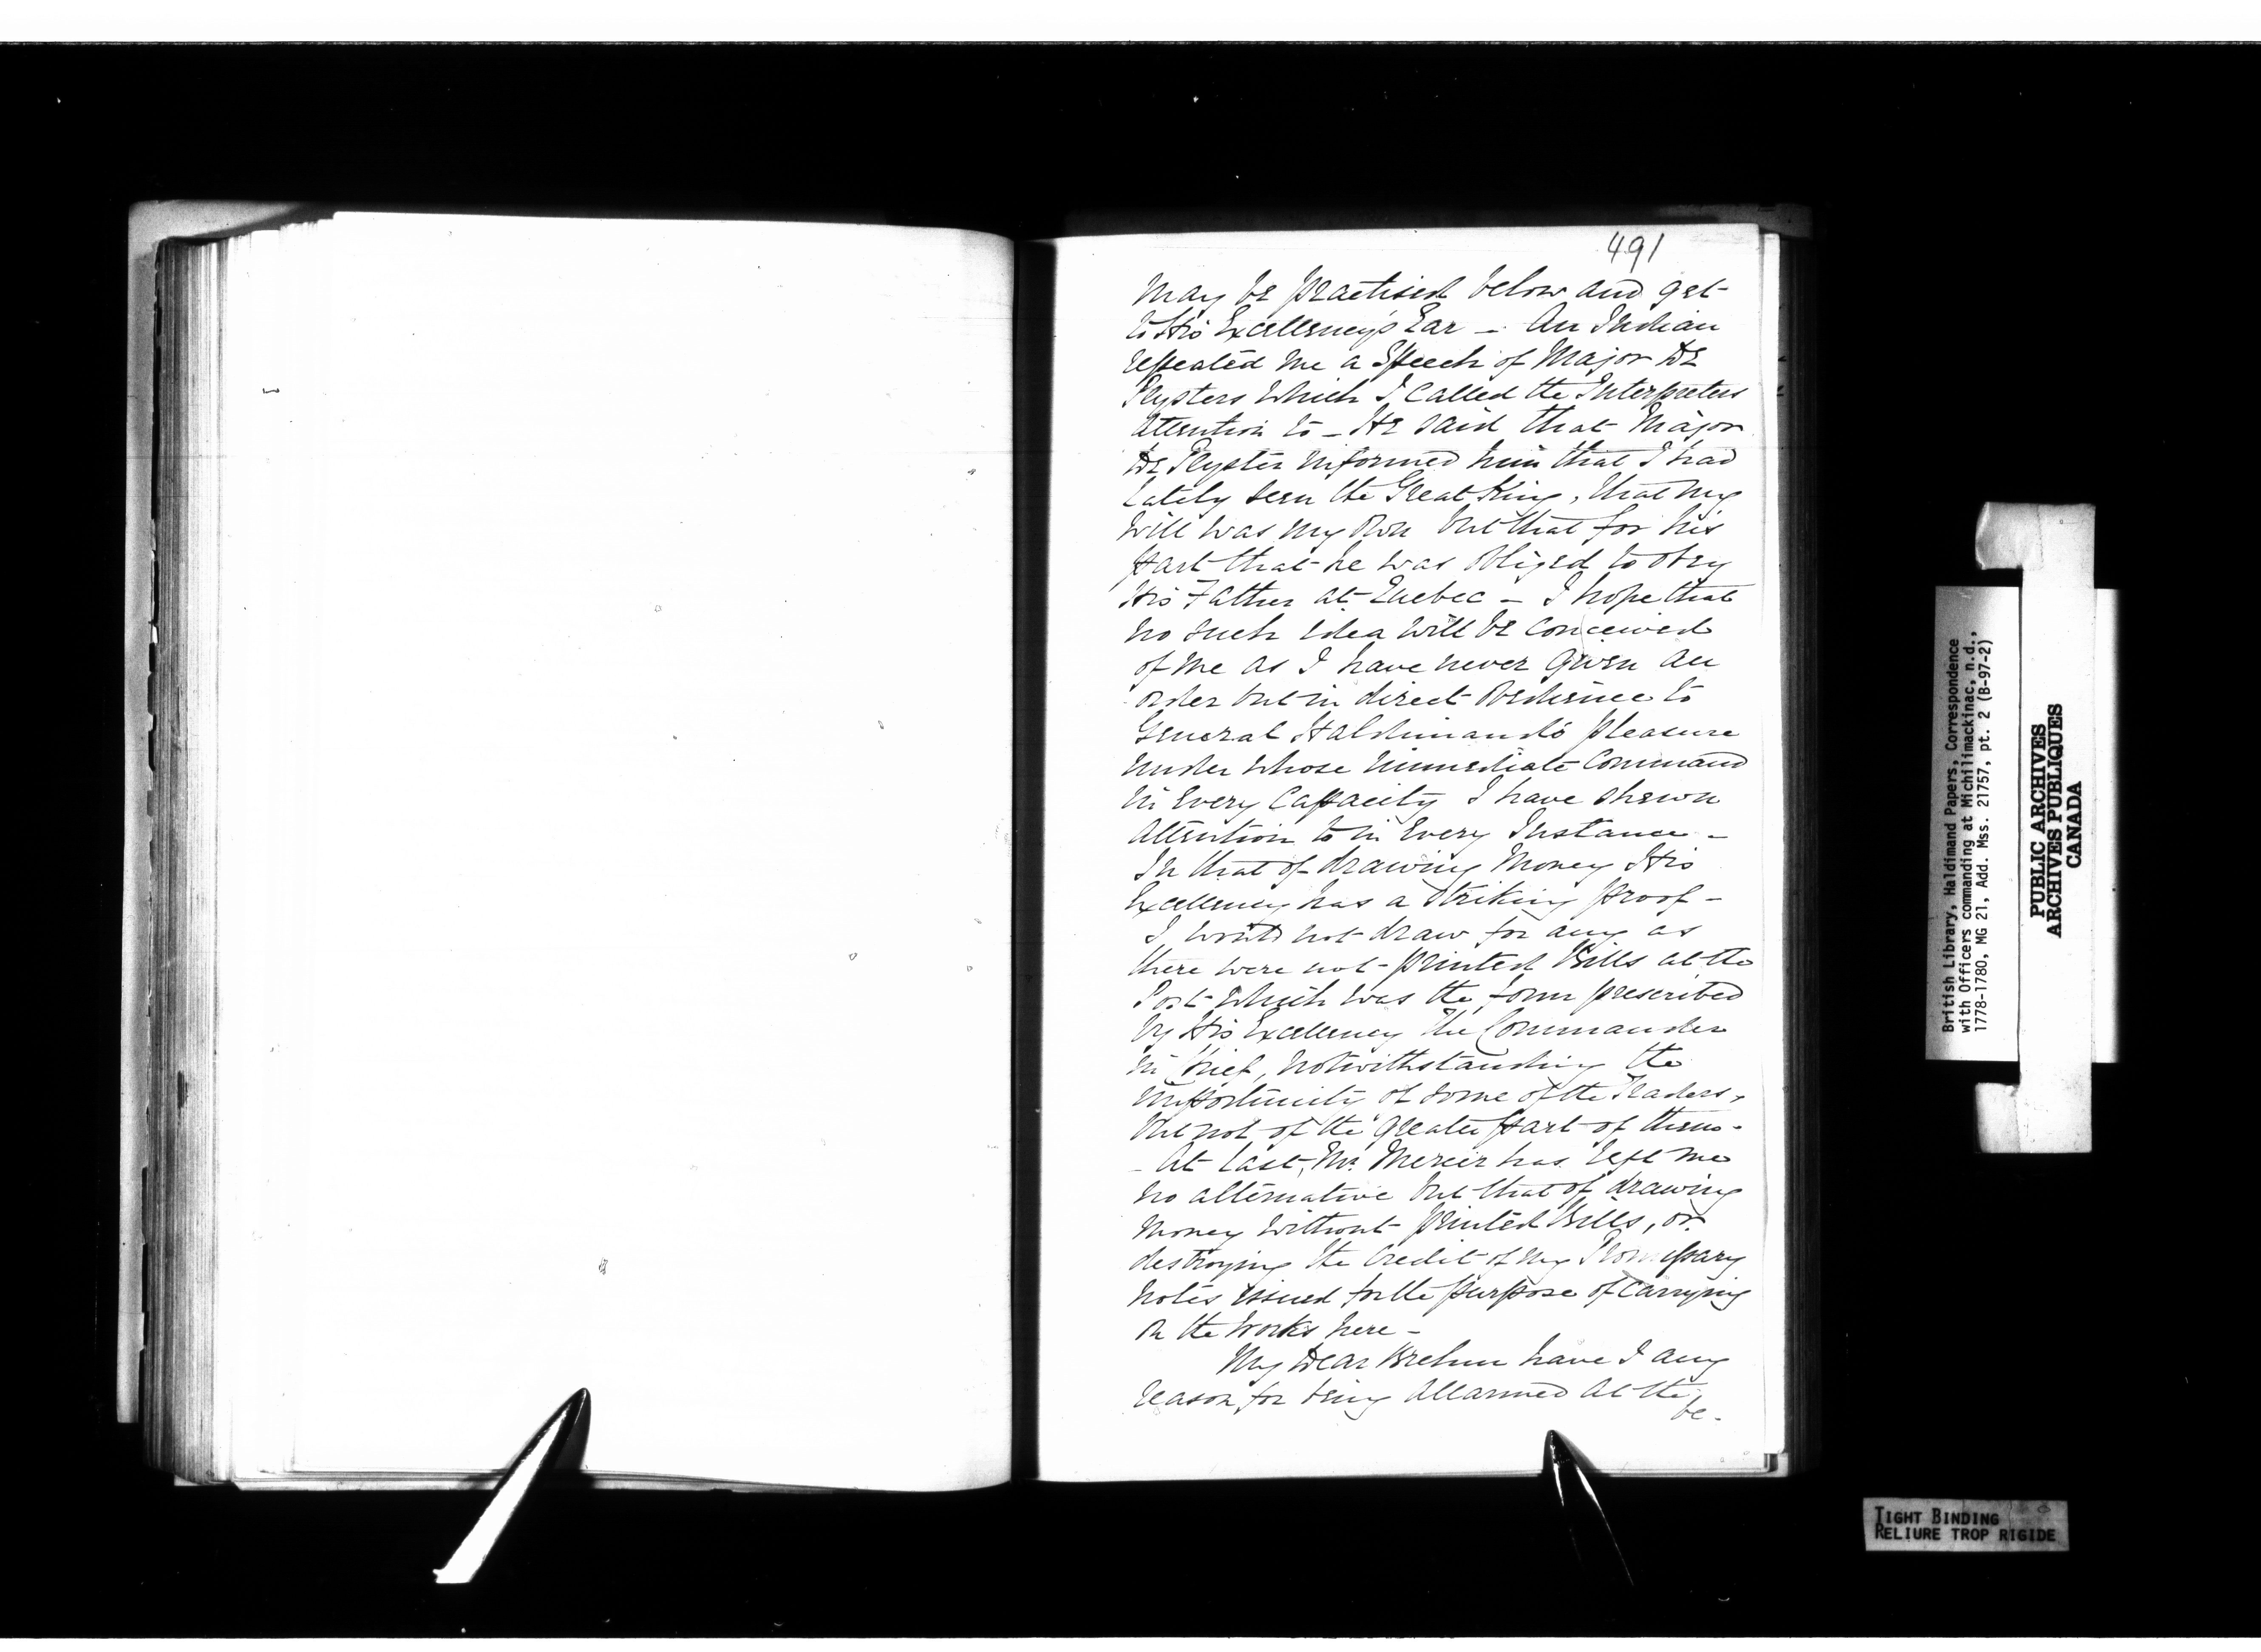 491
May be practised below and get
to His Excellency's Ear - An Indian
repeated me a Speech of Major De
Peysters which I called the Interpreters
attention to - He said that Major
De Peyster informed him that I had
lately seen the Great King, that my
will was my own but that for his
part that he was obliged to obey
His Father at Quebec - I hope that
no such idea will be conceived
of me as I have never given an
order but in direct obedience to
General Haldimand's pleasure
under whose immediate Command
in Every Capacity I have shewn
attention to in Every Instance -
In that of drawing Money His
Excellency has a striking proof -
I would not draw for any as
there were not printed Bills at the
Post which was the form prescribed
by His Excellency the Commander
in Chief, notwithstanding the
importunity of some of the Traders,
but not of the greater part of them -
- At last, Mr. Mercer has left me
no alternative but that of drawing
money without printed Bills, or
destroying the Credit of my Promissary
notes issued for the purpose of carrying
on the works here -
My Dear Brehm have I any
reason for being allarmed at the
be -
British Library, Haldimand Papers, Correspondence
with Officers commanding at Michilimackinac, n.d.,
1778-1780, MG 21, Add. Mss. 21757, pt. 2 (B-97-2)
PUBLIC ARCHIVES
ARCHIVES PUBLIQUES
CANADA
TIGHT BINDING
RELIURE TROP RIGIDE